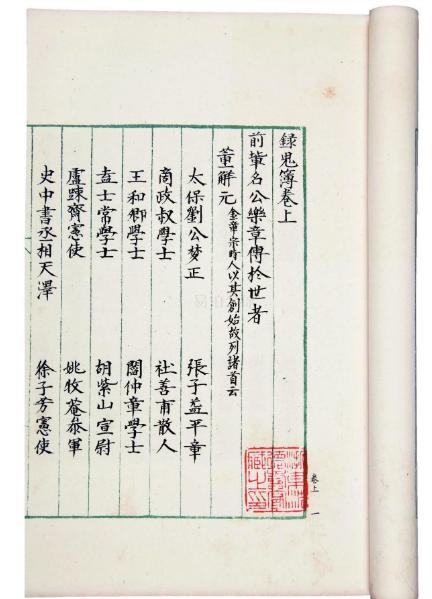 錄鬼簿卷上
前輩名公樂章傳於世者
董解元 金章宗時人以其創始故列諸首云
太保劉公夢正 張子益平章
商政叔學士 杜善甫散人
王和卿學士 閻仲章學士
盍士常學士 胡紫山宣慰
盧踈齋憲使 姚牧菴叅軍
史中書丞相天澤 徐子芳憲使
卷上 一